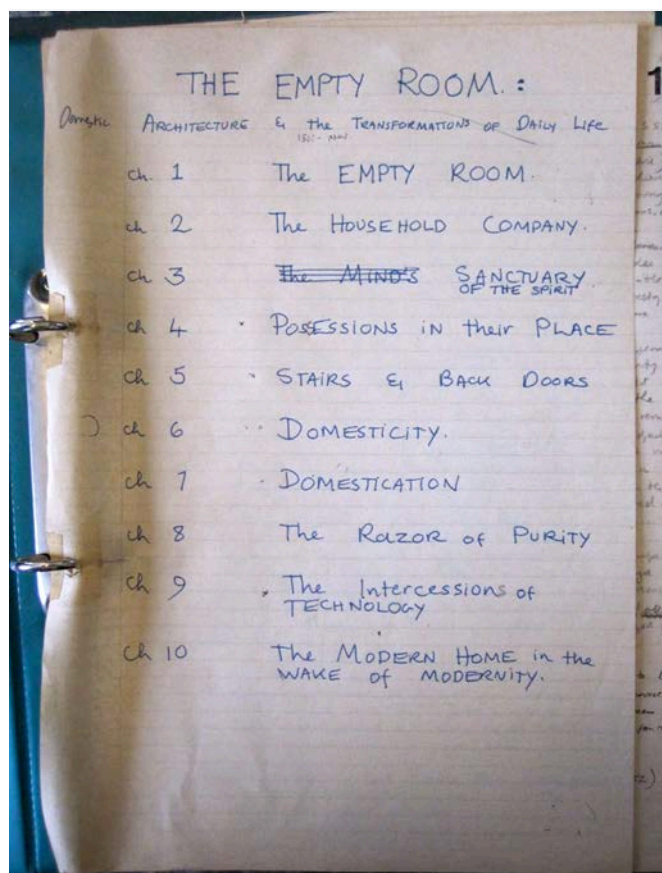 THE EMPTY ROOM.:
Domestic ARCHITECTURE & the TRANSFORMATIONS OF DAILY LIFE
ch. 1 The EMPTY ROOM.
ch 2 The HOUSEHOLD COMPANY.
ch 3 The MIND'S SANCTUARY
OF THE SPIRIT
ch 4 POSSESSIONS in their PLACE
ch 5 STAIRS & BACK DOORS
ch 6 DOMESTICITY.
ch 7 DOMESTICATION
ch 8 The RAZOR of PURITY
ch 9 The Intercessions of
TECHNOLOGY
ch 10 The MODERN HOME in the
WAKE of MODERNITY.
1